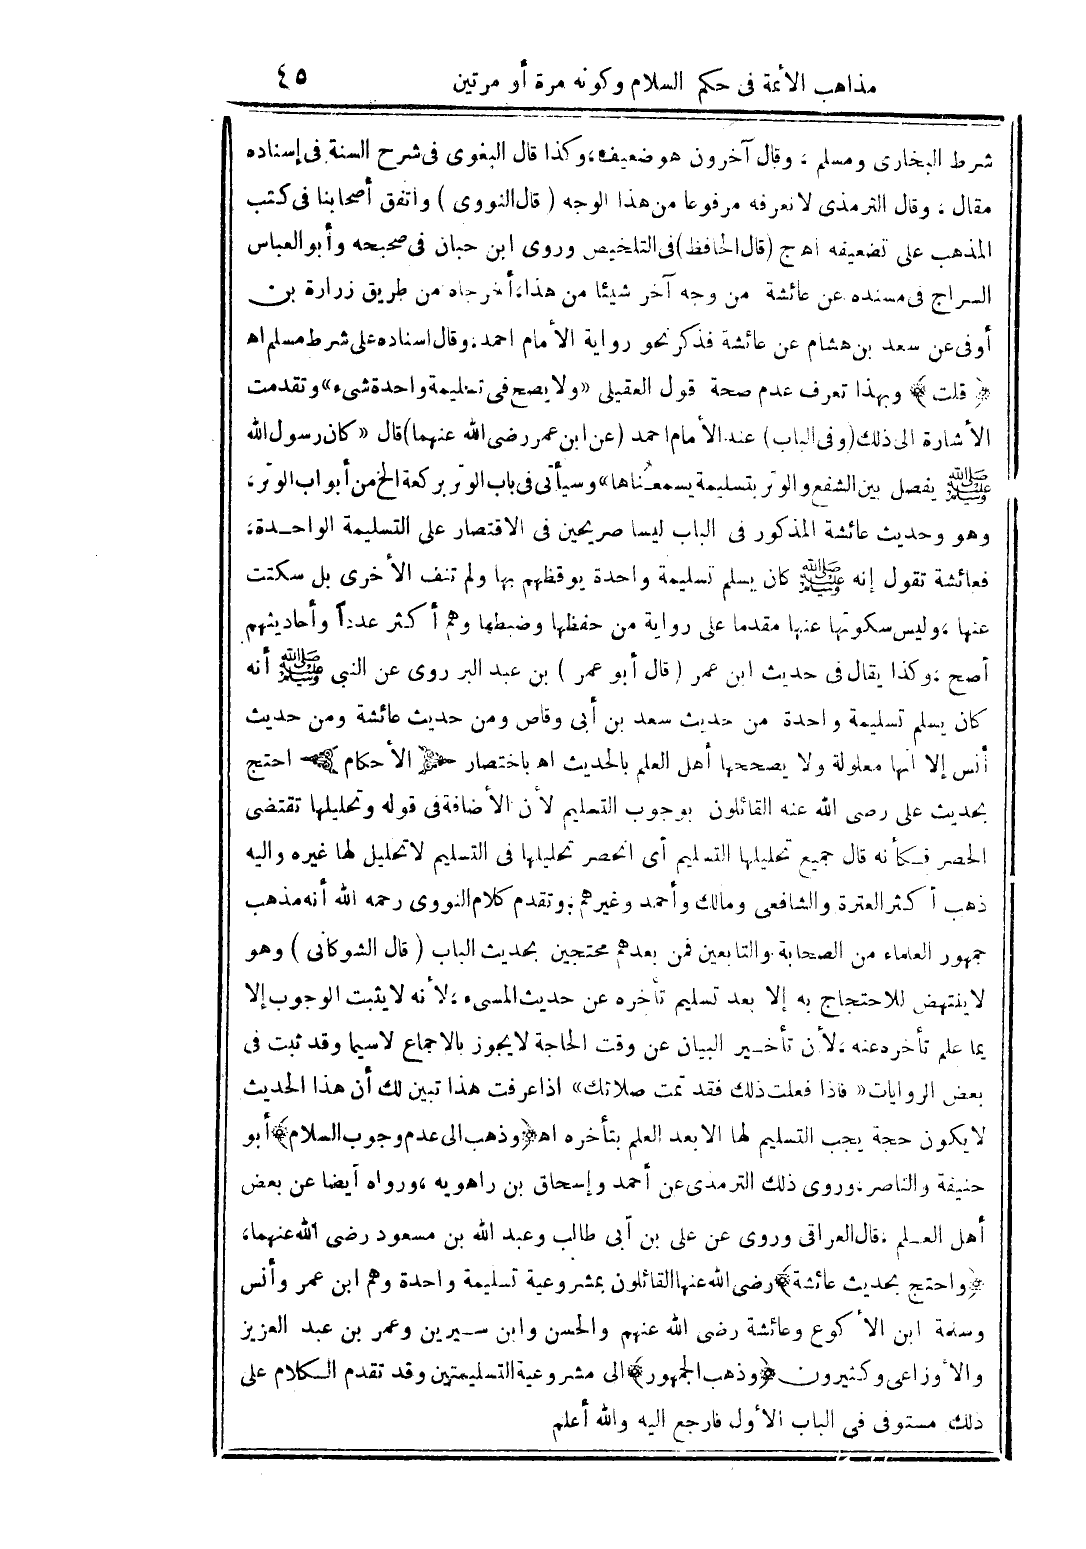 مذاهب الأئمة فى حكم السلام وكونه مرة أو مرتين ٤٥
شرط البخارى ومسلم ، وقال آخرون هو ضعيف ، وكذا قال البغوى فى شرح السنة فى إسناده
مقال ، وقال الترمذى لا نعرفه مرفوعا من هذا الوجه ( قال النووى ) واتفق أصحابنا فى كتب
المذهب على تضعيفه اهج (قال الحافظ) فى التلخيص وروى ابن حبان فى صحيحه وأبو العباس
السراج فى مسنده عن عائشة من وجه آخر شيئا من هذا، أخرجاه من طريق زرارة بن
أوفى عن سعد بن هشام عن عائشة فذكر نحو رواية الأمام احمد، وقال اسناده على شرط مسلم اه
﴿ قلت ﴾ وبهذا تعرف عدم صحة قول العقيلى «ولا يصح فى تسليمة واحدة شىء» وتقدمت
الأشارة الى ذلك (وفى الباب) عند الأمام احمد (عن ابن عمر رضى الله عنهما) قال « كان رسول الله
ﷺ يفصل بين الشفع والوتر بتسليمة يسمعُناها» وسيأتى فى باب الوتر بركعة الخ من أبواب الوتر،
وهو وحديث عائشة المذكور فى الباب ليسا صريحين فى الاقتصار على التسليمة الواحدة،
فعائشة تقول إنه ﷺ كان يسلم تسليمة واحدة يوقظهم بها ولم تنف الأخرى بل سكتت
عنها ، وليس سكوتها عنها مقدما على رواية من حفظها وضبطها وهم أكثر عدداً وأحاديثهم
أصح ، وكذا يقال فى حديث ابن عمر ( قال أبو عمر ) بن عبد البر روى عن النبي ﷺ أنه
كان يسلم تسليمة واحدة من حديث سعد بن أبى وقاص ومن حديث عائشة ومن حديث
أنس إلا أنها معلولة ولا يصححها أهل العلم بالحديث اه باختصار ﴿ الأحكام ﴾ احتج
بحديث على رضى الله عنه القائلون بوجوب التسليم لأن الأضافة فى قوله وتحليلها تقتضى
الحصر فكأنه قال جميع تحليلها التسليم أى انحصر تحليلها فى التسليم لا تحليل لها غيره واليه
ذهب أكثر العترة والشافعى ومالك وأحمد وغيرهم ، وتقدم كلام النووى رحمه الله أنه مذهب
جمهور العلماء من الصحابة والتابعين فمن بعدهم محتجين بحديث الباب ( قال الشوكانى ) وهو
لا ينتهض للاحتجاج به إلا بعد تسليم تأخره عن حديث المسىء ، لأنه لا يثبت الوجوب إلا
بما علم تأخره عنه ، لأن تأخير البيان عن وقت الحاجة لا يجوز بالاجماع لاسيما وقد ثبت فى
بعض الروايات « فاذا فعلت ذلك فقد تمت صلاتك» اذا عرفت هذا تبين لك أن هذا الحديث
لا يكون حجة يجب التسليم لها الا بعد العلم بتأخره اه ﴿وذهب الى عدم وجوب السلام﴾ أبو
حنيفة والناصر ، وروى ذلك الترمذى عن أحمد وإسحاق بن راهويه ، ورواه أيضا عن بعض
أهل العلم ، قال العراقى وروى عن على بن أبى طالب وعبد الله بن مسعود رضى الله عنهما،
﴿واحتج بحديث عائشة﴾ رضى الله عنها القائلون بمشروعية تسليمة واحدة وهم ابن عمر وأنس
وسلمة ابن الأكوع وعائشة رضى الله عنهم والحسن وابن سيرين وعمر بن عبد العزيز
والأوزاعى وكثيرون ﴿وذهب الجمهور﴾ الى مشروعية التسليمتين وقد تقدم الكلام على
ذلك مستوفى فى الباب الأول فارجع اليه والله أعلم